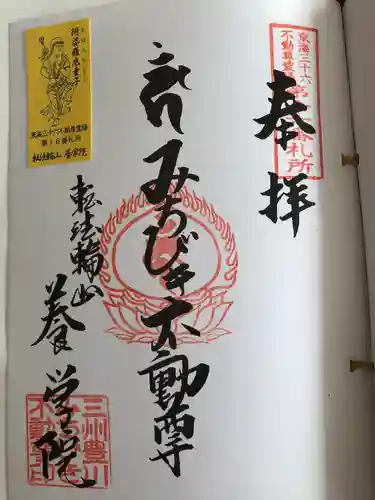 東海三十六
不動尊霊場
第十六番札所
奉拝
みちびき不動尊
転法輪山
養学院
三州豊川
不動
阿婆羅底童子
東海三十六不動霊場
第16番札所
転法輪山 養学院